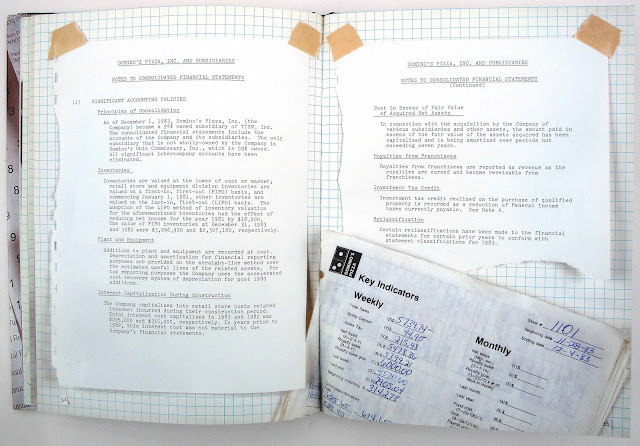 DOMINO'S PIZZA, INC. AND SUBSIDIARIES
NOTES TO CONSOLIDATED FINANCIAL STATEMENTS
(1) SIGNIFICANT ACCOUNTING POLICIES
Principles of Consolidation
As of December 1, 1983, Domino's Pizza, Inc. (the
Company) became a 98% owned subsidiary of TISM, Inc.
The consolidated financial statements include the
accounts of the Company and its subsidiaries. The only
subsidiary that is not wholly-owned by the Company is
Domino's Ohio Commissary, Inc., which is 59% owned.
All significant intercompany accounts have been
eliminated.
Inventories
Inventories are valued at the lower of cost or market;
retail store and equipment division inventories are
valued on a first-in, first-out (FIFO) basis, and
commencing January 1, 1981, other inventories are
valued on the last-in, first-out (LIFO) basis. The
adoption of the LIFO method of inventory valuation
for the aforementioned inventories had the effect of
reducing net income for the year 1982 by
The value of FIFO inventories at December 31, 1983
and 1982 were and respectively.
Plant and Equipment
Additions to plant and equipment are recorded at cost.
Depreciation and amortization for financial reporting
purposes are provided on the straight-line method over
the estimated useful lives of the related assets. For
tax reporting purposes the Company uses the accelerated
cost recovery system of depreciation for post 1980
additions.
Interest Capitalization During Construction
The Company capitalizes into retail store costs related
interest incurred during their construction period.
Total interest cost capitalized in 1983 and 1982 was
and respectively. In years prior to
1982, this interest cost was not material to the
Company's financial statements.
DOMINO'S PIZZA, INC. AND SUBSIDIARIES
NOTES TO CONSOLIDATED FINANCIAL STATEMENTS
(Continued)
Cost in Excess of Fair Value
of Acquired Net Assets
In connection with the acquisition by the Company of
various subsidiaries and other assets, the amount paid in
excess of the fair value of the assets acquired has been
capitalized and is being amortized over periods not
exceeding seven years.
Royalties from Franchisees
Royalties from Franchisees are reported as revenue as the
royalties are earned and become receivable from
franchisees.
Investment Tax Credit
Investment tax credit realized on the purchase of qualified
property is recorded as a reduction of Federal income
taxes currently payable. See Note 4.
Reclassification
Certain reclassifications have been made to the financial
statements for certain prior years to conform with
statement classifications for 1983.
DOMINO'S PIZZA
Key Indicators
Weekly
Store # 1101
Beginning date 11-28-83
Ending date 12-4-83
Monthly
Net Sales
Sales Tax
Beginning inventory
Last month
Last year